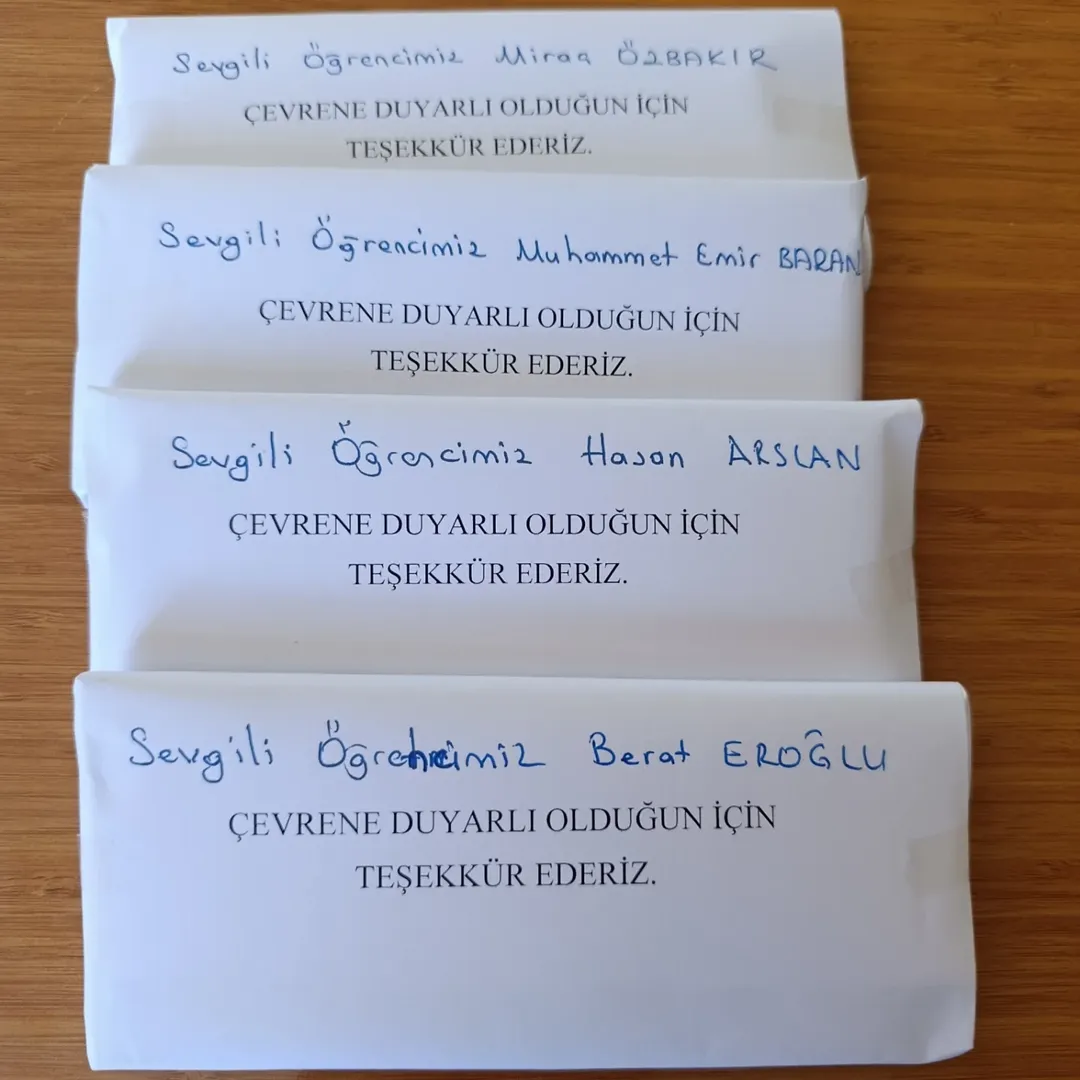 Sevgili Öğrencimiz Miraç ÖZBAKIR
ÇEVRENE DUYARLI OLDUĞUN İÇİN
TEŞEKKÜR EDERİZ.
Sevgili Öğrencimiz Muhammet Emir BARAN
ÇEVRENE DUYARLI OLDUĞUN İÇİN
TEŞEKKÜR EDERİZ.
Sevgili Öğrencimiz Hasan ARSLAN
ÇEVRENE DUYARLI OLDUĞUN İÇİN
TEŞEKKÜR EDERİZ.
Sevgili Öğrencimiz Berat EROĞLU
ÇEVRENE DUYARLI OLDUĞUN İÇİN
TEŞEKKÜR EDERİZ.